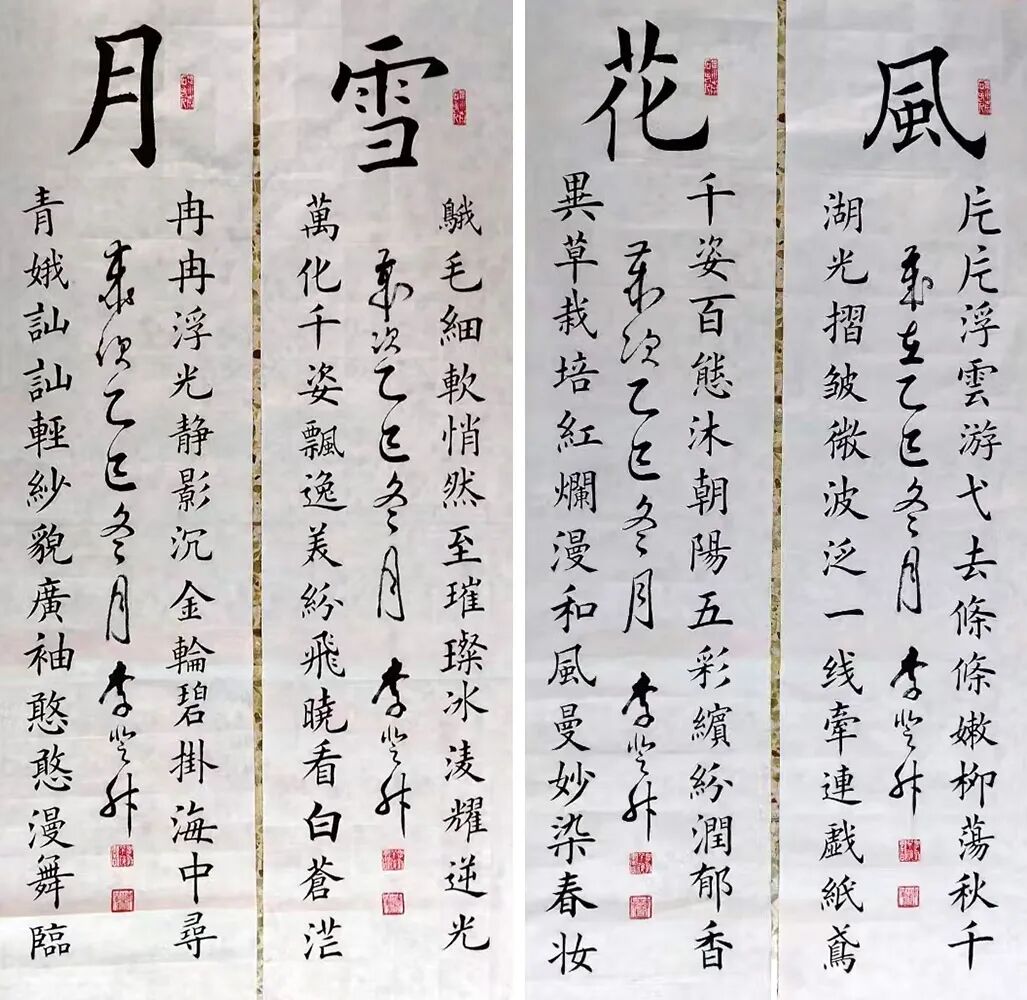 風
片片浮雲游弋去條條嫩柳蕩秋千
湖光摺皱微波泛一线牽連戲紙鳶
歲在乙巳冬月李登州
花
千姿百態沐朝陽五彩繽紛潤郁香
異草栽培紅爛漫和風曼妙染春妆
歲次乙巳冬月李登
雪
鵝毛細軟悄然至璀璨冰淩耀逆光
萬化千姿飄逸美紛飛曉看白蒼茫
歲次乙巳冬月李登
月
冉冉浮光静影沉金輪碧掛海中尋
青娥訕訕輕紗貌廣袖憨憨漫舞臨
歲次乙巳冬月李登